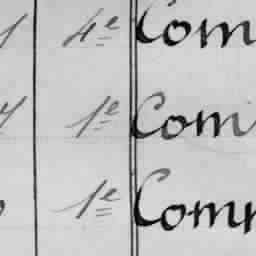 4e Com
1e Com
1e Com